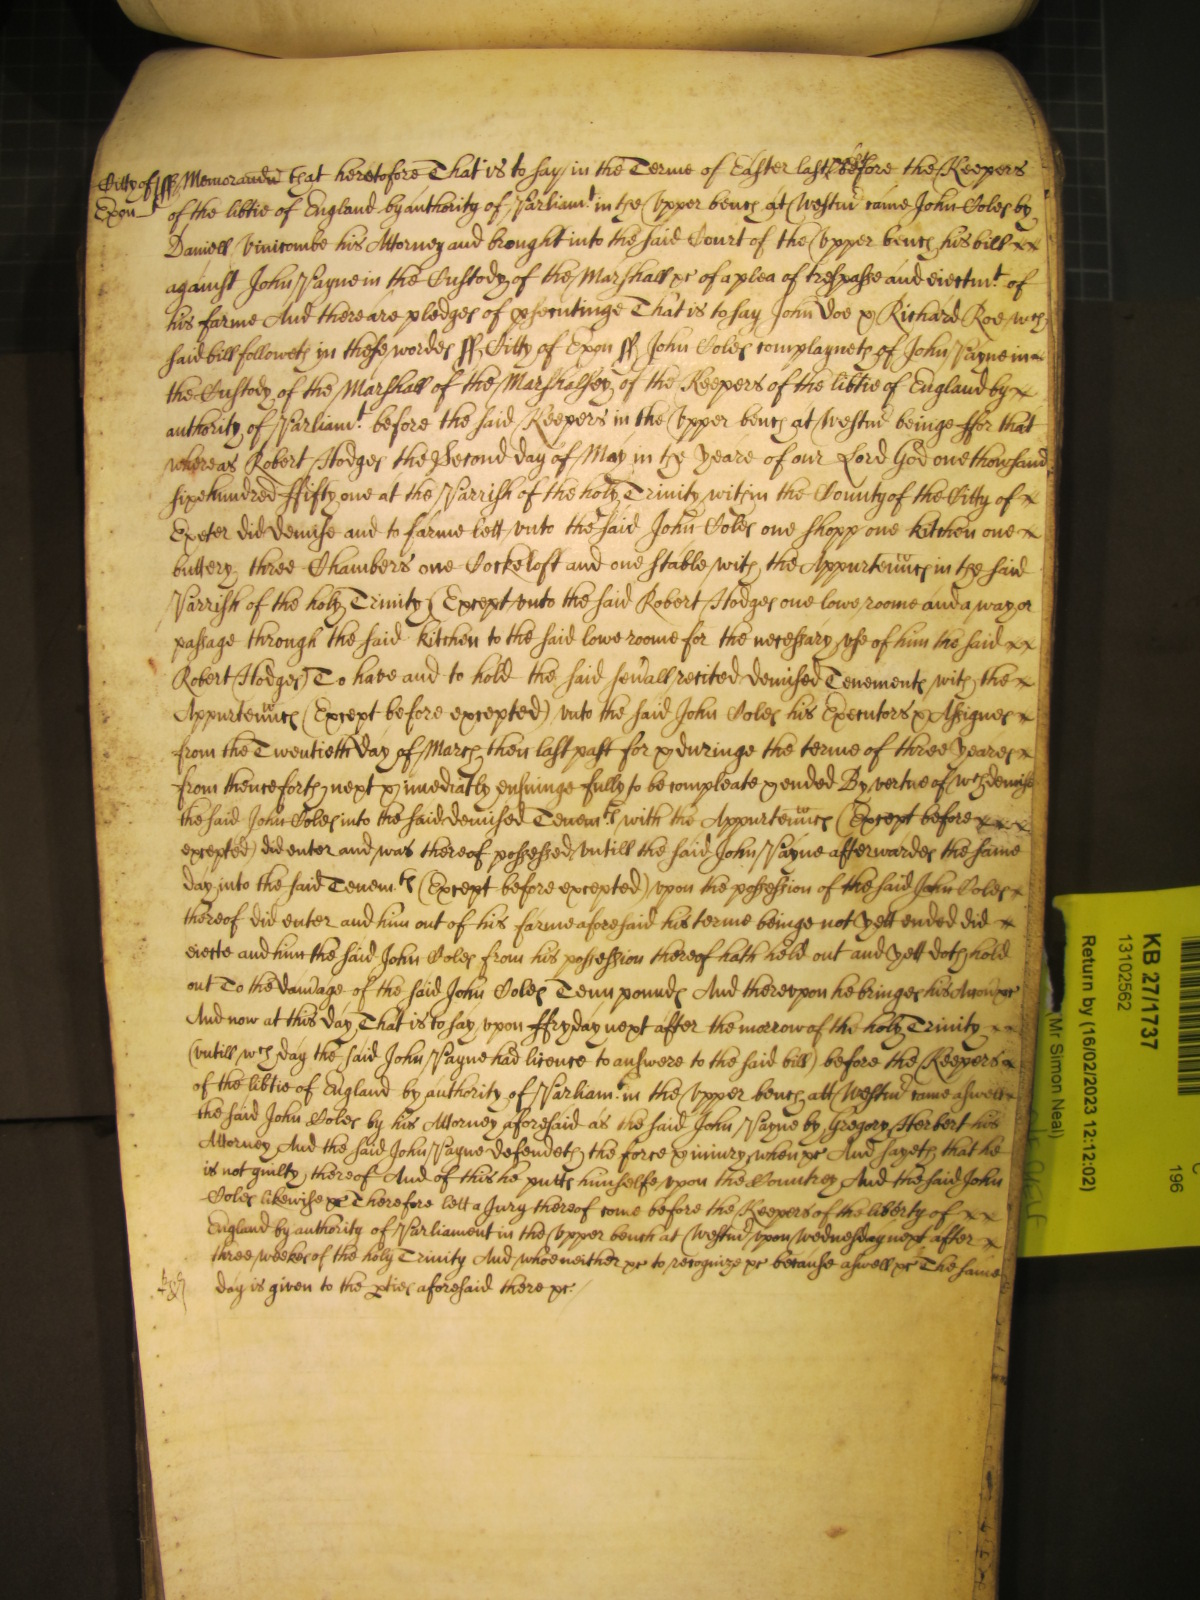 Citty of Exon ſſ Memorandu that heretofore That is to say in the Terme of Easter last past before the Keepers
of the libtie of England by authority of Parliamt in the Vpper bench at Westm̄ came John Coles by
Daniell Vinicombe his Attorney and brought into the said Court of the Vpper bench his bill xx
against John Payne in the Custody of the Marshall &c of a plea of trespasse and eiectmt of
his farme And there are pledges of psecutinge That is to say John Doe & Richard Roe wch
said bill followeth in these wordes ſſ Citty of Exon ſſ John Coles complayneth of John Payne in
the Custody of the Marshall of the Marshalsey of the Keepers of the libtie of England by x
authority of Parliamt before the said Keepers in the Vpper bench at Westm̄ beinge ffor that
whereas Robert Hodges the Second day of May in the yeare of our Lord God one thowsand
sixe hundred ffifty one at the Parrish of the holy Trinity within the County of the Citty of x
Exeter did demise and to farme lett vnto the said John Coles one shopp one kitchen one x
buttery three Chambers one Cockeloft and one stable with the Appurtennces in the said
Parrish of the holy Trinity (Except vnto the said Robert Hodges one lowe roome and a way or
passage through the said kitchen to the said lowe roome for the necessary vse of him the said xx
Robert Hodges) To have and to hold the said seuall recited demised Tenements with the x
Appurtennces (Except before excepted) vnto the said John Coles his Executors & Assignes x
from the Twentieth day of March then last past for & duringe the terme of three yeares x
from thenceforth next & imediatly ensuinge fully to be compleate & ended By vertue of wch demise
the said John Coles into the said demised Tenemts with the Appurtennces (Except before xxx
excepted) did enter and was thereof possessed vntill the said John Payne afterwardes the same
day into the said Tenemts (Except before excepted) vpon the possession of the said John Coles x
thereof did enter and him out of his farme aforesaid his terme beinge not yett ended did x
eiecte and him the said John Coles from his possession thereof hath held out and yett doth hold
out To the damage of the said John Coles Tenn pounds And therevpon he bringes his
And now at this day That is to say vpon ffryday next after the morrow of the holy Trinity xx
(vntill wch day the said John Payne had licence to answere to the said bill) before the Keepers x
of the libtie of England by authority of Parliamt in the Vpper bench att Westm̄ came aswell x
the said John Coles by his Attorney aforesaid as the said John Payne by Gregory Herbert his
Attorney And the said John Payne defendeth the force & iniury when &c And sayeth that he
is not guilty thereof And of this he putts himselfe vpon the Countrey And the said John
Coles likewise &c Therefore lett a Jury thereof come before the Keepers of the liberty of xx
England by authority of Parliament in the Vpper bench at Westm̄ vpon Wednesday next after x
three weekes of the holy Trinity And whoe neither &c to recognize &c because aswell &c The same
day is given to the pties aforesaid there &c
KB 27/1737
13102562
Return by (16/02/2023 12:12:02)
(Mr Simon Neal)
196